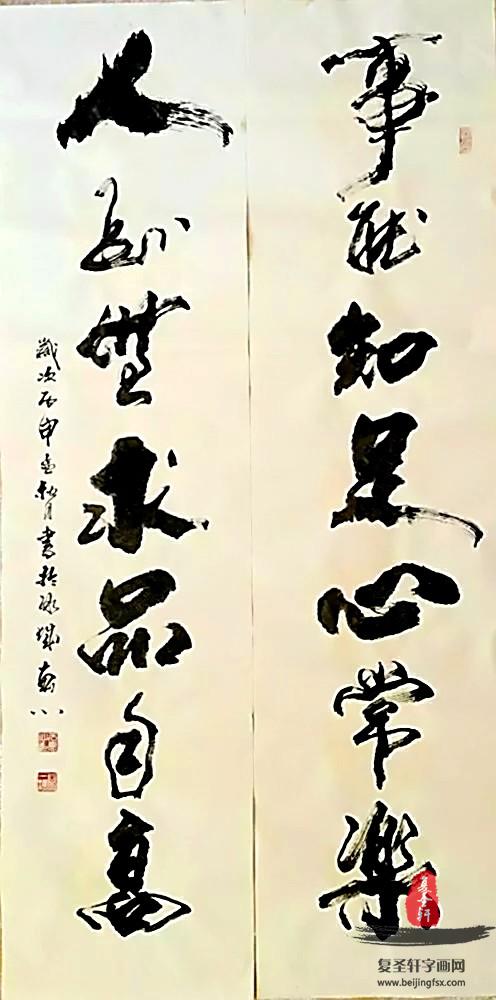 事能知足心常樂
人到無求品自高
歲次丙申金秋月書於
复圣轩
复圣轩字画网
www.beijingfsx.com